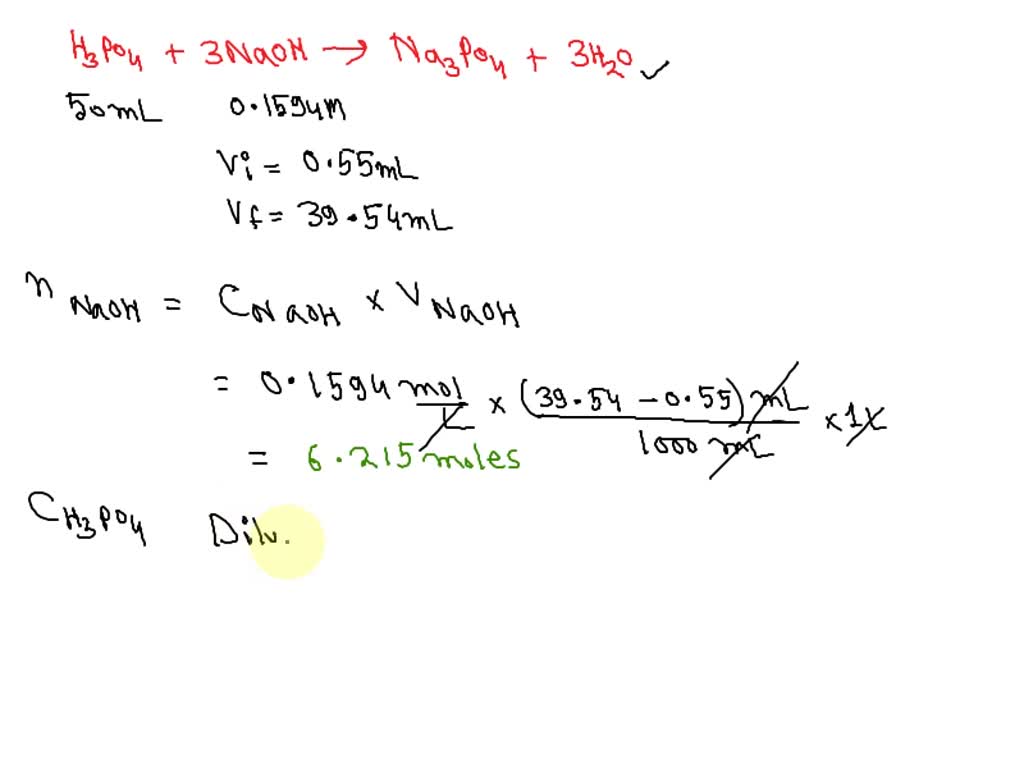 H₃PO₄ + 3NaOH → Na₃PO₄ + 3H₂O ✓
50mL 0.1594M
Vi = 0.55mL
Vf = 39.54mL
n NaOH = C NaOH × V NaOH
= 0.1594 mol/L × (39.54 - 0.55) mL/1000 mL × 1L
= 6.215 moles
C H₃PO₄ Dilu.